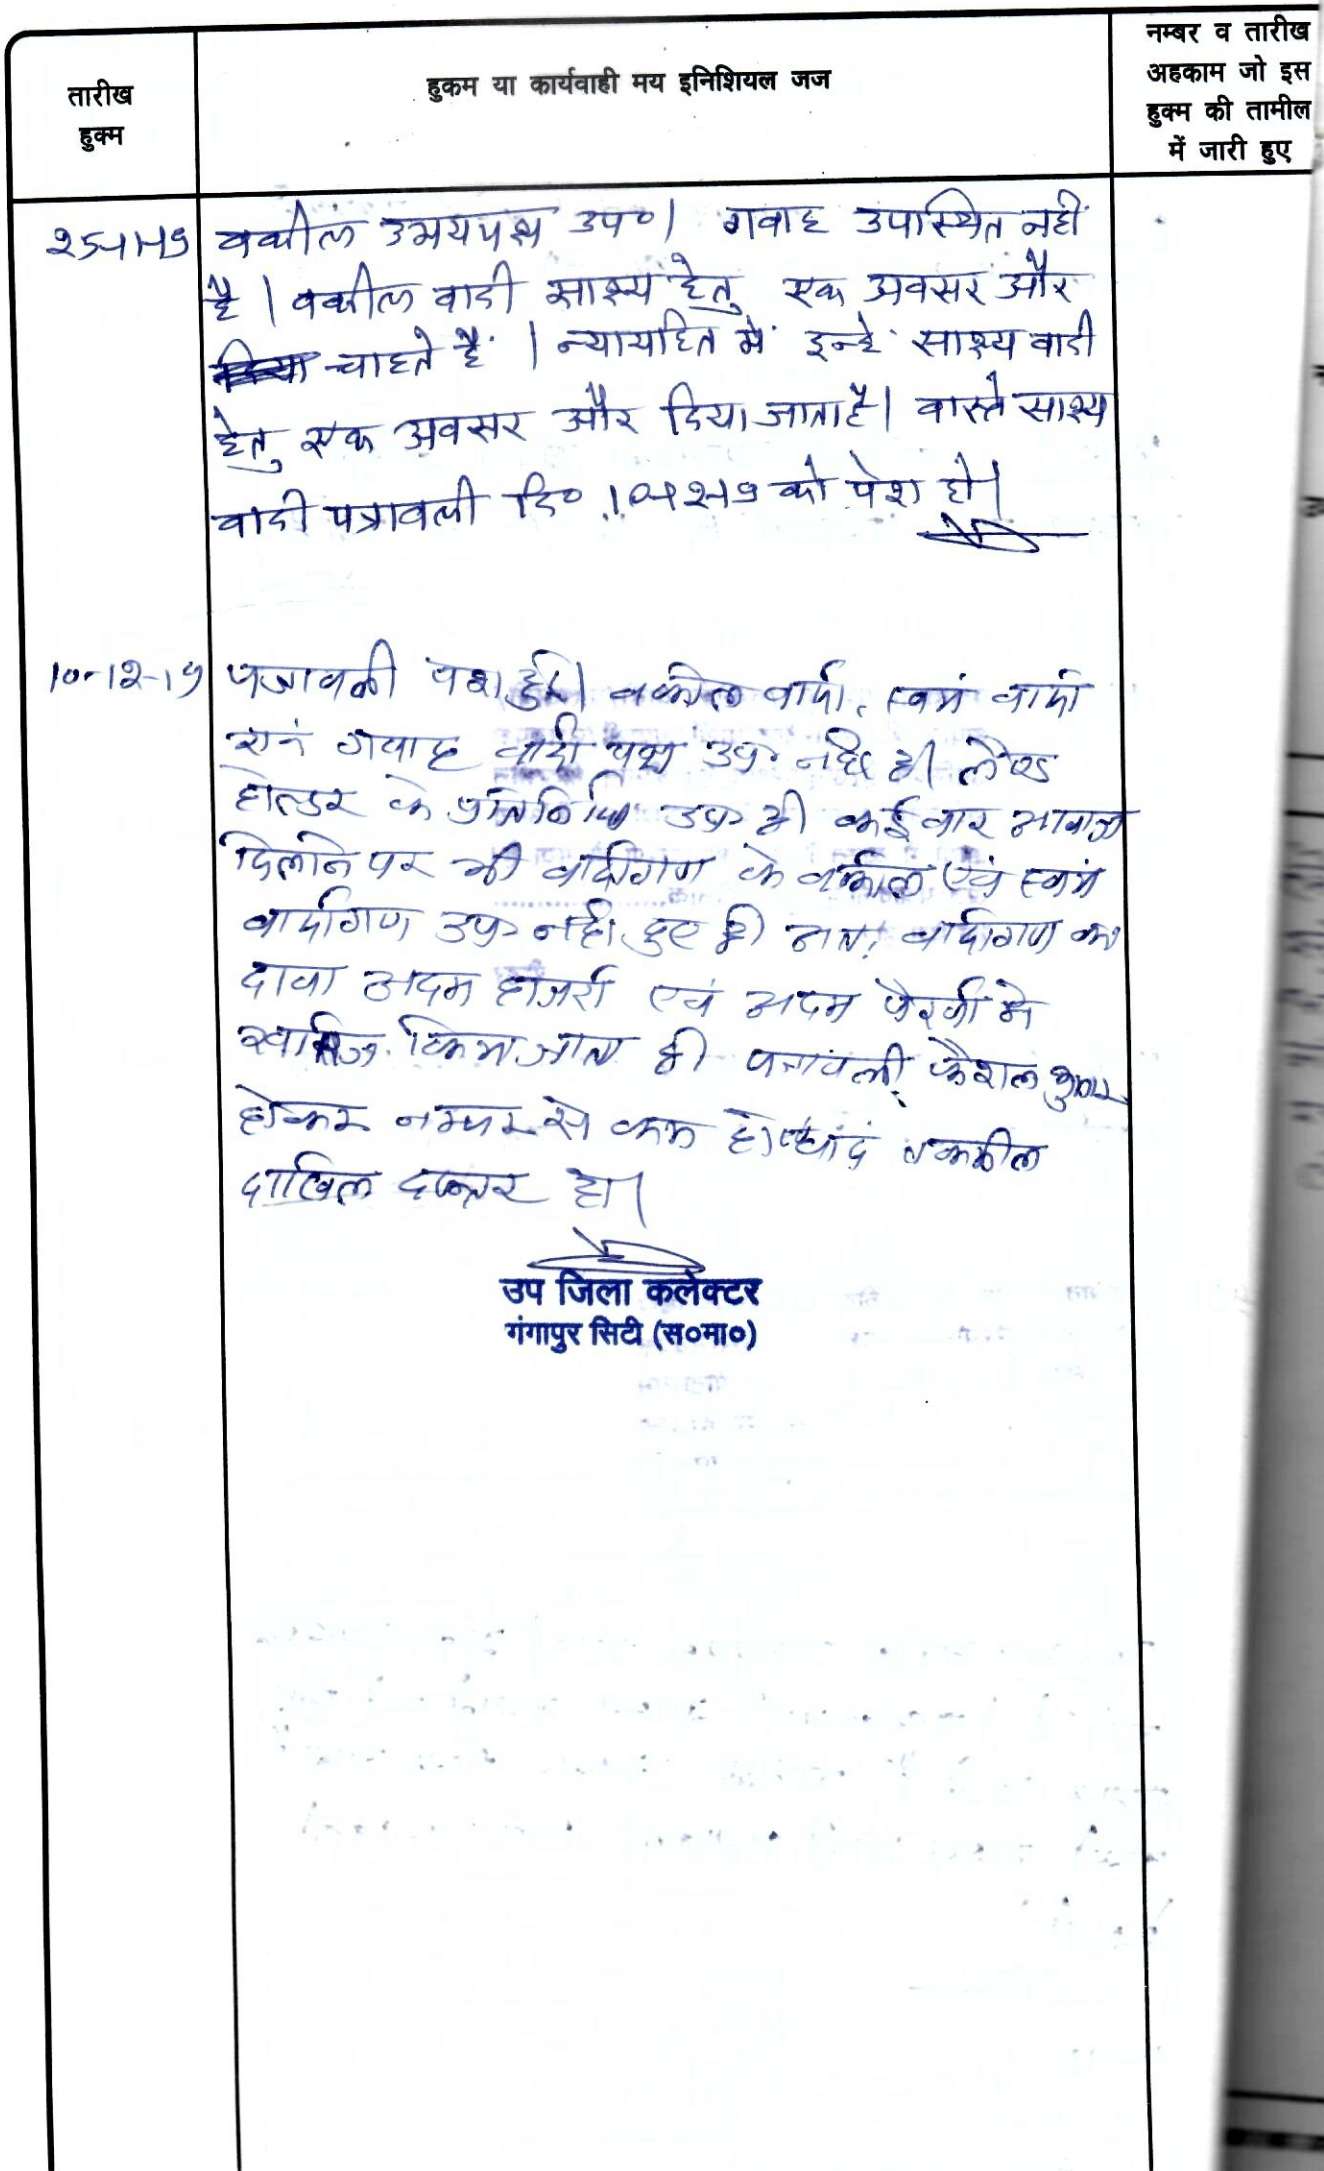 तारीख
हुक्म
हुकम या कार्यवाही मय इनिशियल जज
नम्बर व तारीख
अहकाम जो इस
हुक्म की तामील
में जारी हुए
25-11-19 वकील उभयपक्ष उप०। गवाह उपस्थित नहीं
है। वकील वादी साक्ष्य हेतु एक अवसर और
चाहते हैं। न्यायहित में इन्हें साक्ष्य वादी
हेतु एक अवसर और दिया जाता है। वास्ते साक्ष्य
वादी पत्रावली दि० 10-12-19 को पेश हो।
10-12-19 पत्रावली पेश हुई। वकील वादी, स्वयं वादी
एवं गवाह वादी पक्ष उप० नहीं है। लैण्ड
होल्डर के प्रतिनिधि उप० है। कई बार आवाज
दिलाने पर भी वादीगण के वकील एवं स्वयं
वादीगण उप० नहीं हुए है। अतः वादीगण का
दावा अदम हाजरी एवं अदम पैरवी में
खारिज किया जाता है। पत्रावली फैशल शुमार
होकर नम्बर से कम हो बाद तकमील
दाखिल दफ्तर हो।
उप जिला कलेक्टर
गंगापुर सिटी (स०मा०)